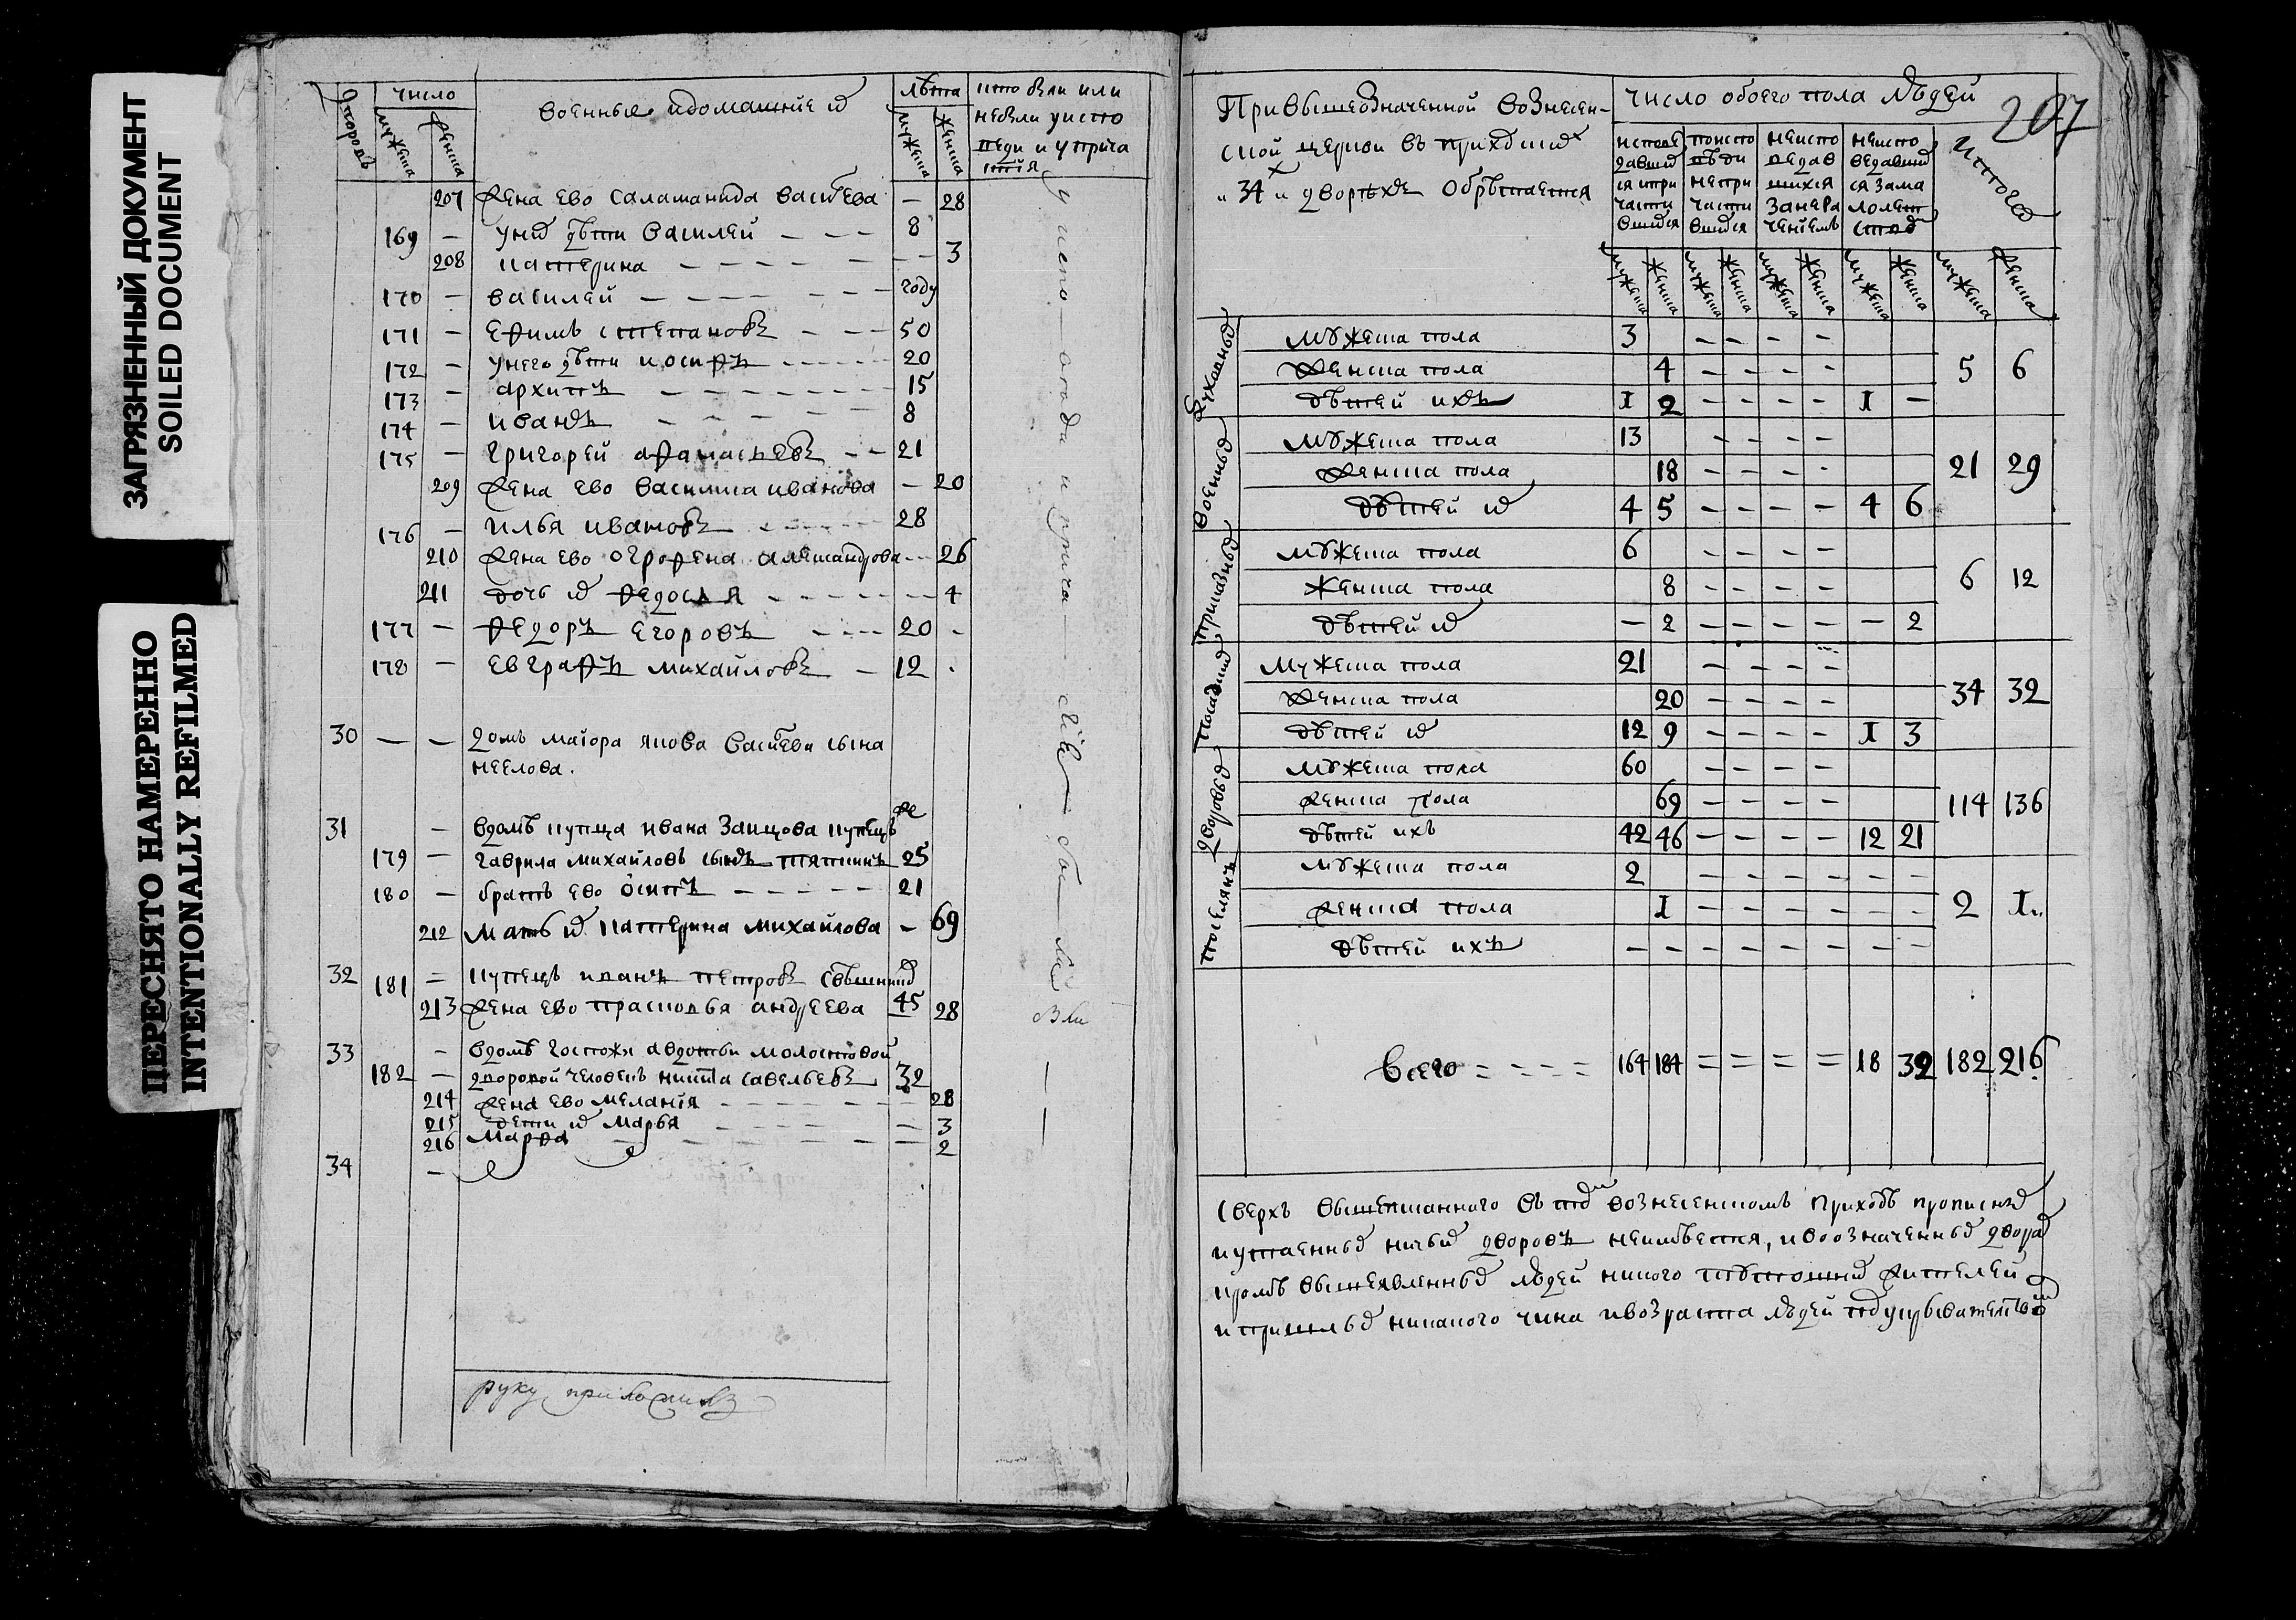 ЗАГРЯЗНЕННЫЙ ДОКУМЕНТ
SOILED DOCUMENT
ПЕРЕСНЯТО НАМЕРЕННО
INTENTIONALLY REFILMED
число
мужеска
женска
военные и домашние их
лѣта
мужеска
женска
кто были или
небыли у испо
веди и у прича
стия
207 жена ево саламанида василева — 28
169 — у них дѣти василей — — — 8
208 катерина — — — — — — 3
170 — василей — — — — — — году
171 — ефимъ степановъ — — — 50
172 — у него дѣти иосифъ — — — 20
173 — архипъ — — — — — — 15
174 — иванъ — — — — — — 8
175 — григорей афанасьевъ — — 21
209 жена ево василиса иванова — 20
176 — илья ивановъ — — — — 28
210 жена ево огрофена александрова — 26
211 дочь их федосия — — — — — 4
177 — федоръ егоровъ — — — 20 -
178 — евграфъ михайловъ — 12 -
30 — — домъ маиора якова василева сына
неелова.
31 — вдомѣ купца ивана заицова купецъ
179 — гаврила михайловъ сынъ 25
180 — братъ ево осипъ — — — — — 21
212 мать их катерина михайлова — 69
32 181 — купецъ иванъ петровъ 45
213 жена ево прасковья андреева 28
33 — вдомѣ госпожи авдотьи молоствовой
182 — дворовой человекъ никита савельевъ 32
214 жена ево мелания — — — — 28
215 дети их марья — — — — 3
216 марфа — — — — — 2
34 —
были
руку приложилъ
207
При вышеозначенной вознесен-
ской церкви въ приходских
34х дворѣхъ обрѣтается
число обоего пола людей
исповедавшихся и причастившихся
поисповѣди непричастившихся
неисповедавшихся за нерачениемъ
неисповедавшихся за малолетством
итого
мужеска женска мужеска женска мужеска женска мужеска женска мужеска женска
духовных
мужеска пола 3 — — — —
женска пола 4 — — — — 5 6
дѣтей ихъ 1 2 — — — — 1 —
военных
мужеска пола 13 — — — —
женска пола 18 — — — — 21 29
дѣтей их 4 5 — — — — 4 6
приказных
мужеска пола 6 — — — —
женска пола 8 — — — — 6 12
дѣтей их — 2 — — — — — 2
посадских
мужеска пола 21 — — — —
женска пола 20 — — — — 34 32
дѣтей их 12 9 — — — — 1 3
дворовых
мужеска пола 60 — — — —
женска пола 69 — — — — 114 136
дѣтей ихъ 42 46 — — — — 12 21
поселянъ
мужеска пола 2 — — — — — —
женска пола 1 — — — — — — 2 1
дѣтей ихъ — — — — — — — —
всего = = = = 164 184 = = = = 18 32 182 216
сверхъ вышеписанного въ том вознесенскомъ приходѣ прописных
и утаенных ничьих дворовъ неимѣется, и во означенных дворах
кромѣ вышеявленных людей никого жителей
и пришлых никакого чина и возраста людей